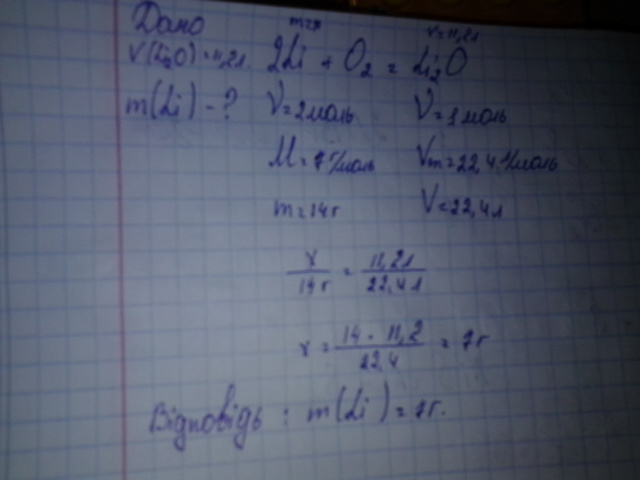 Дано
m=x
V=11,2л
V(Li₂O)=11,2л. 2Li + O₂ = Li₂O
m(Li) - ? ν=2моль ν=1моль
M=7г/моль Vm=22,4л/моль
m=14г V=22,4л
x/14г = 11,2л/22,4л
x = 14·11,2/22,4 = 7г
Відповідь : m(Li)=7г.